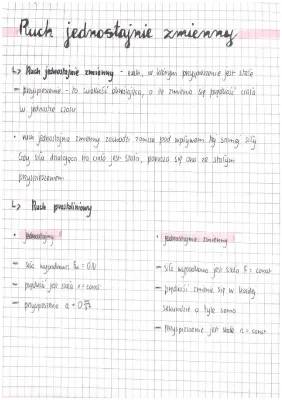 Ruch jednostajnie zmienny
↳ Ruch jednostajnie zmienny - ruch, w którym przyspieszenie jest stałe
— przyspieszenie - to wielkość określająca, o ile zmienia się prędkość ciała
w jednostce czasu
• ruch jednostajnie zmienny zachodzi zawsze pod wpływem tej samej siły
Gdy siła działająca na ciało jest stała, porusza się ono ze stałym
przyspieszeniem
↳ Ruch prostoliniowy
• jednostajny
— siła wypadkowa Fw = 0N
— prędkość jest stała v = const
— przyspieszenie a = 0 m/s²
• jednostajnie zmienny
— siła wypadkowa jest stała F = const
— prędkość zmienia się w każdej
sekundzie o tyle samo
— przyspieszenie jest stałe a = const